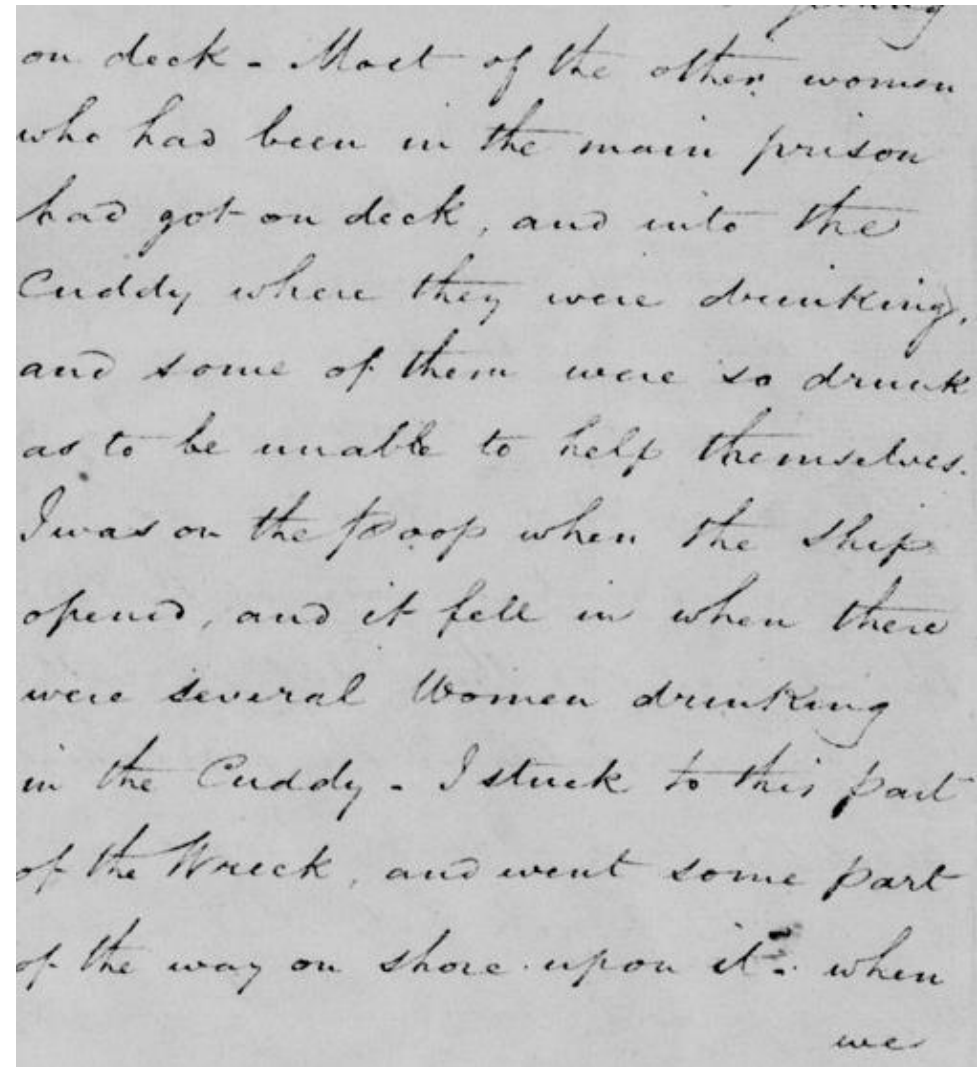 on deck - Most of the other women
who had been in the main prison
had got on deck, and into the
Cuddy where they were drinking,
and some of them were so drunk
as to be unable to help themselves.
I was on the Poop when the Ship
opened, and it fell in when there
were several Women drinking
in the Cuddy - I stuck to this part
of the Wreck, and went some part
of the way on shore upon it - when
we